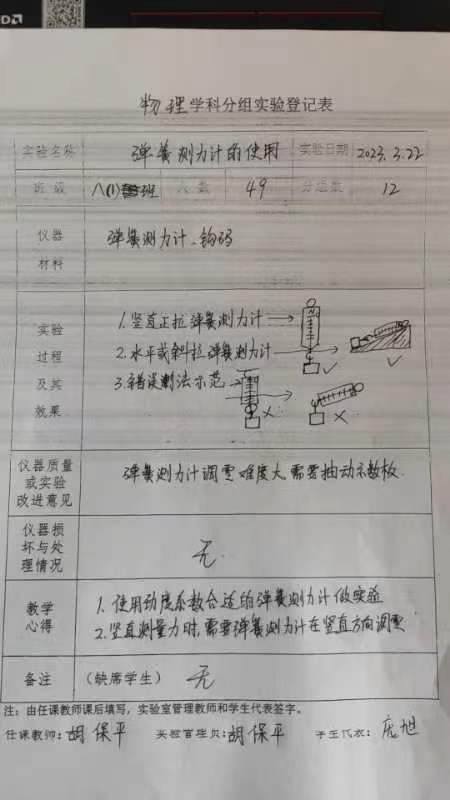 物理学科分组实验登记表
实验名称 弹簧测力计的使用 实验日期 2023.3.22
班级 八(1)班 人数 49 分组数 12
仪器材料 弹簧测力计、钩码
实验过程及其效果
1.竖直正拉弹簧测力计
2.水平或斜拉弹簧测力计
3.错误测法示范
仪器质量或实验改进意见 弹簧测力计调零难度大,需要抽动示数板.
仪器损坏与处理情况 无.
教学心得
1.使用劲度系数合适的弹簧测力计做实验
2.竖直测量力时,需要弹簧测力计在竖直方向调零
备注 (缺席学生) 无
注:由任课教师课后填写,实验室管理教师和学生代表签字。
任课教师:胡保平 实验管理员:胡保平 学生代表:庞旭